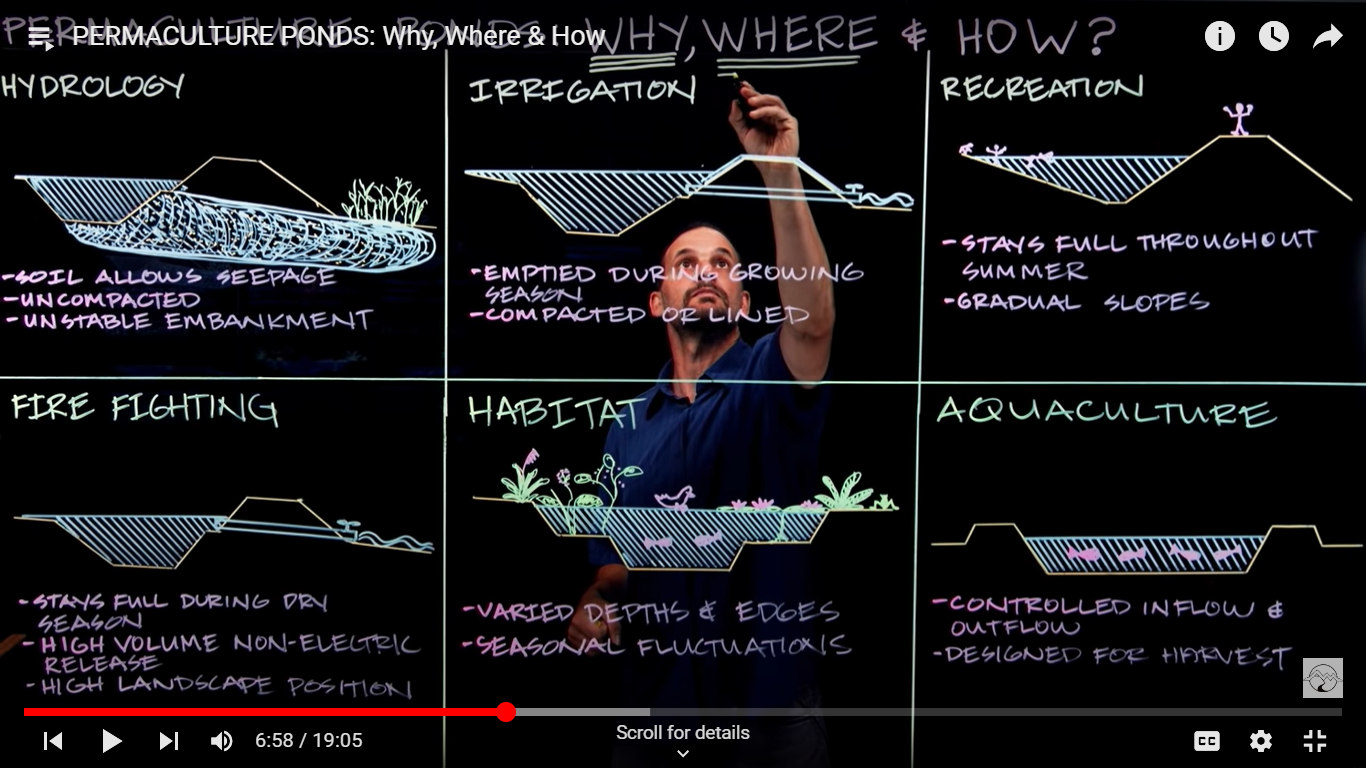 PERMACULTURE PONDS: WHY, WHERE & HOW?
PERMACULTURE PONDS: Why, Where & How
HYDROLOGY
-SOIL ALLOWS SEEPAGE
-UNCOMPACTED
-UNSTABLE EMBANKMENT
IRRIGATION
-EMPTIED DURING GROWING
SEASON
-COMPACTED OR LINED
RECREATION
-STAYS FULL THROUGHOUT
SUMMER
-GRADUAL SLOPES
FIRE FIGHTING
-STAYS FULL DURING DRY
SEASON
-HIGH VOLUME NON-ELECTRIC
RELEASE
-HIGH LANDSCAPE POSITION
HABITAT
-VARIED DEPTHS & EDGES
-SEASONAL FLUCTUATIONS
AQUACULTURE
-CONTROLLED INFLOW &
OUTFLOW
-DESIGNED FOR HARVEST
6:58 / 19:05
Scroll for details
CC